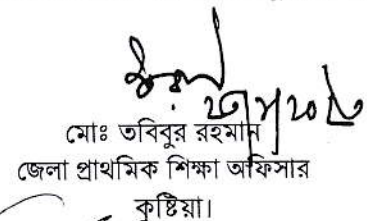 মোঃ তবিবুর রহমান
জেলা প্রাথমিক শিক্ষা অফিসার
কুষ্টিয়া।